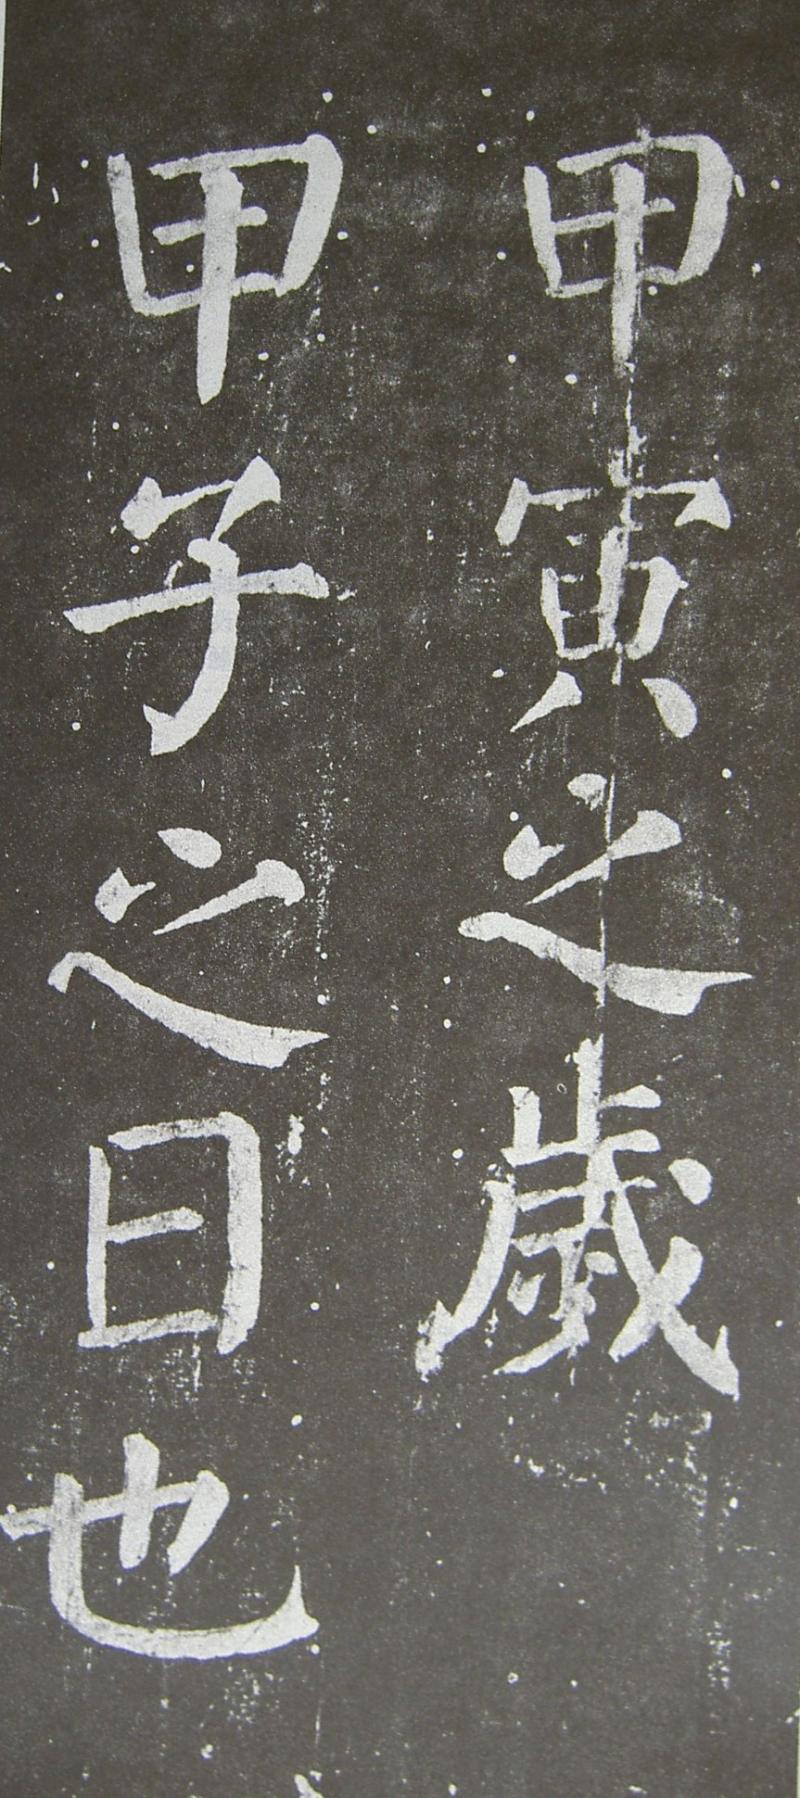 甲寅之歲
甲子之日也